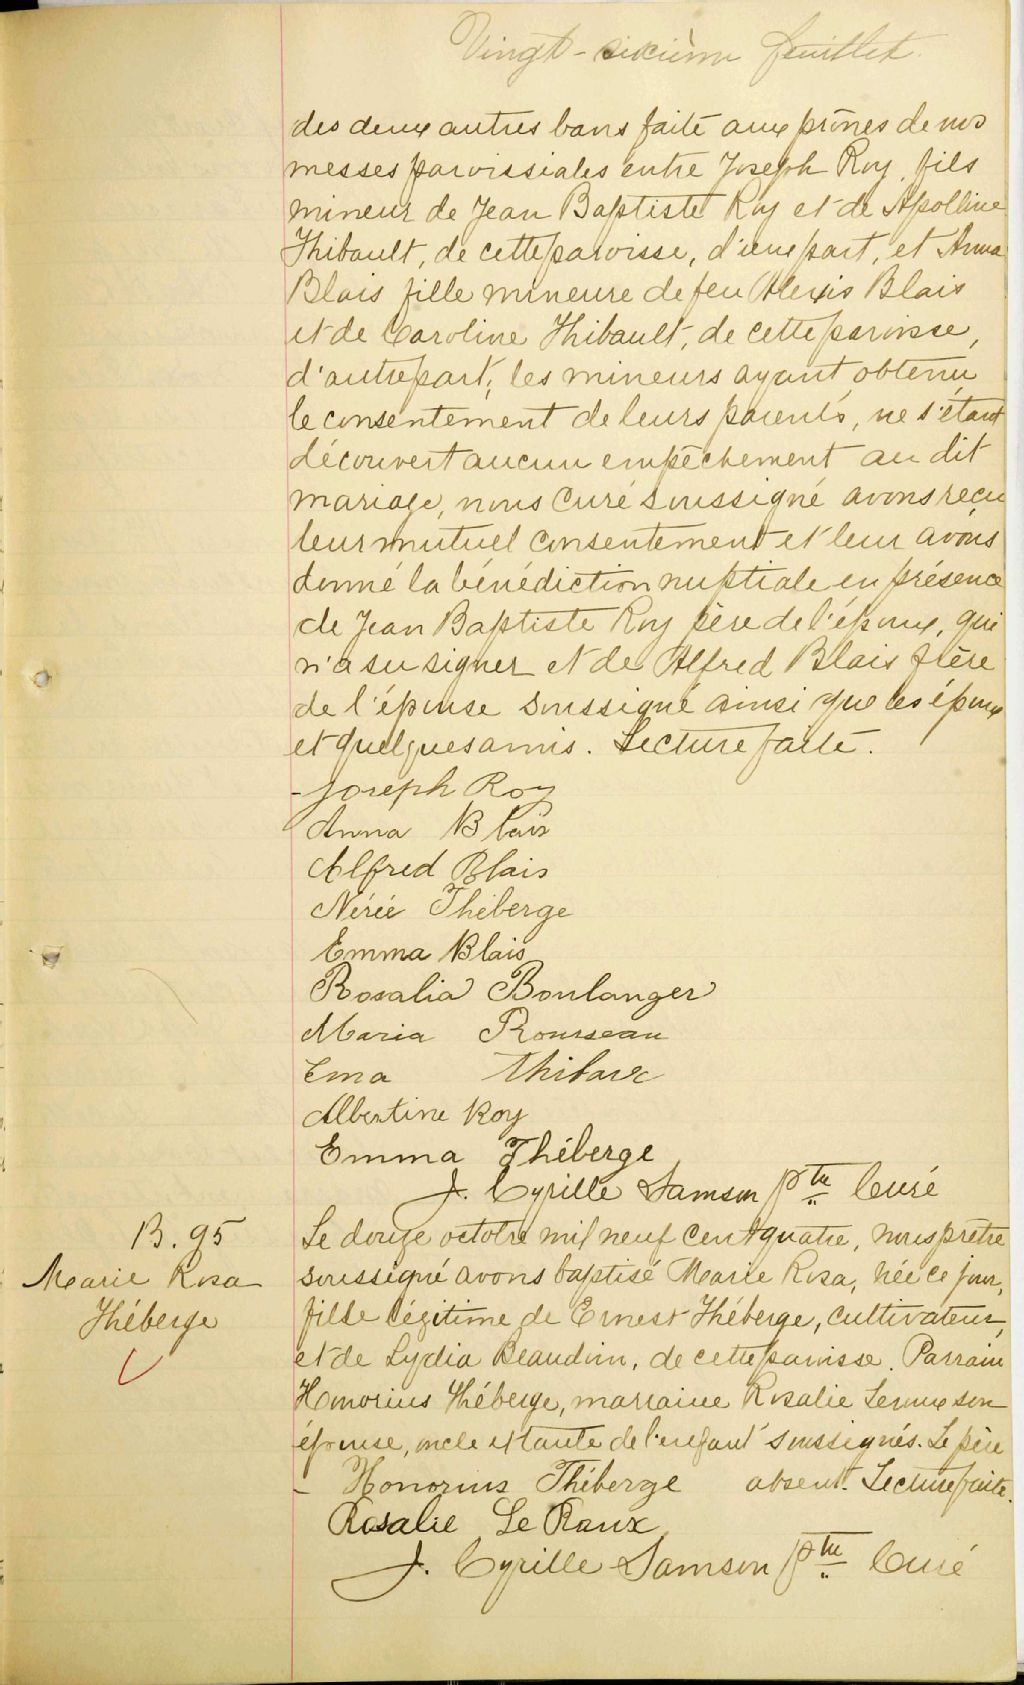 Vingt-sixième feuillet.
des deux autres bans faite aux prônes de nos
messes paroissiales entre Joseph Roy, fils
mineur de Jean Baptiste Roy et de Apolline
Thibault, de cette paroisse, d'une part, et Anna
Blais fille mineure de feu Alexis Blais
et de Caroline Thibault, de cette paroisse,
d'autre part, les mineurs ayant obtenu
le consentement de leurs parents, ne s'étant
découvert aucun empêchement au dit
mariage, nous Curé soussigné avons reçu
leur mutuel consentement et leur avons
donné la bénédiction nuptiale en présence
de Jean Baptiste Roy père de l'époux, qui
n'a su signer et de Alfred Blais frère
de l'épouse soussigné ainsi que les époux
et quelques amis. Lecture faite.
Joseph Roy
Anna Blais
Alfred Blais
Nérée Théberge
Emma Blais
Rosalia Boulanger
Maria Rousseau
Ema
Albertine Roy
Emma Théberge
J. Cyrille Samson Ptre Curé
B. 95
Marie Rosa
Théberge
Le douze octobre mil neuf cent quatre, nous prêtre
soussigné avons baptisé Marie Rosa, née ce jour,
fille légitime de Ernest Théberge, cultivateur,
et de Lydia Beaudoin, de cette paroisse. Parrain
Honorius Théberge, marraine Rosalie Leroux son
épouse, oncle et tante de l'enfant soussignés. Le père
absent. Lecture faite.
Honorius Théberge
Rosalie Le Roux
J. Cyrille Samson Ptre Curé